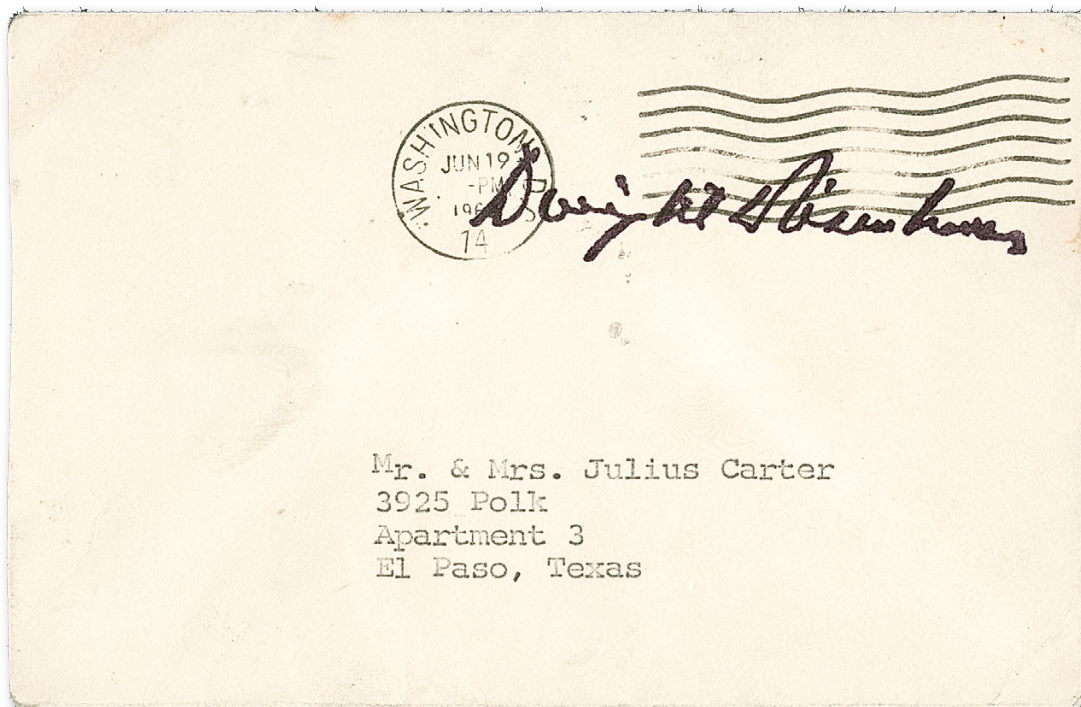 WASHINGTON, D
JUN 19
-PM
196
14
Dwight D Eisenhower
Mr. & Mrs. Julius Carter
3925 Polk
Apartment 3
El Paso, Texas